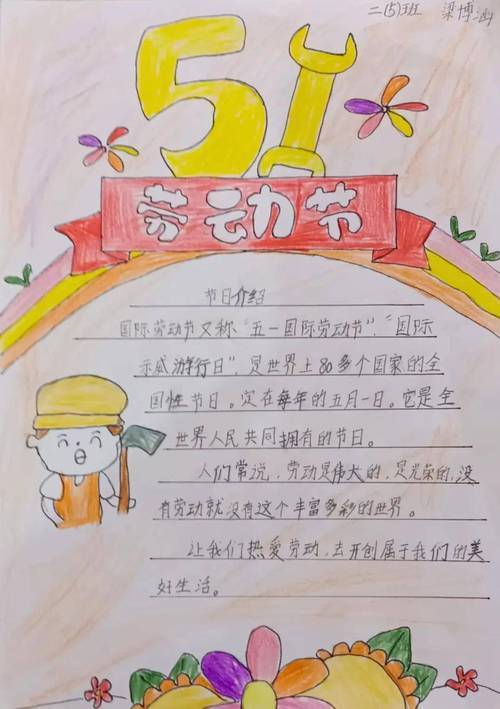 二(5)班 梁博涵
51
劳动节
节日介绍
国际劳动节又称“五一国际劳动节”、“国际
示威游行日”，是世界上80多个国家的全
国性节日。定在每年的五月一日。它是全
世界人民共同拥有的节日。
人们常说，劳动是伟大的，是光荣的，没
有劳动就没有这个丰富多彩的世界。
让我们热爱劳动，去开创属于我们的美
好生活。